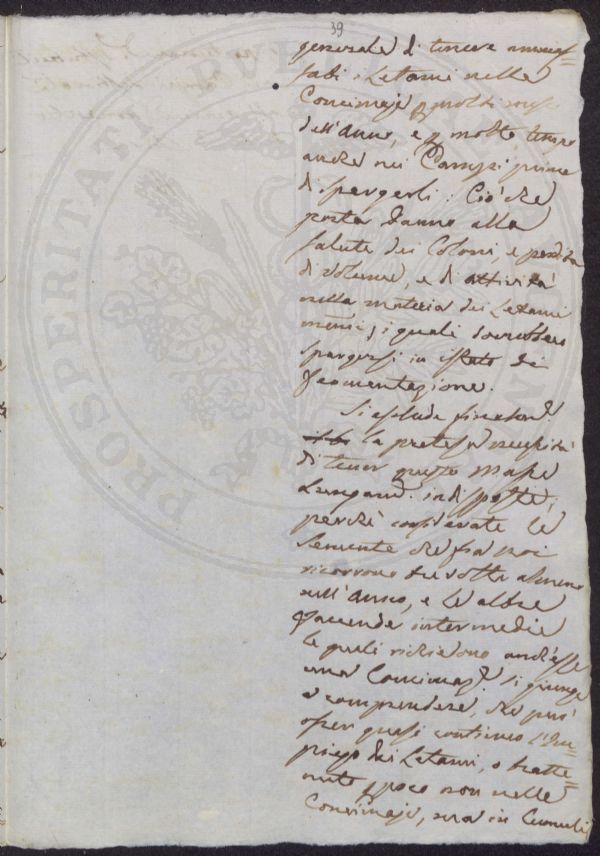 39
generale di tenere ammas=
sati i Letami nelle
Concimaje p molti mesi
dell'Anno, e p molto tempo
anche nei Campi prima
di spargerli: Ciò che
porta danno alla
salute dei Coloni, e perdita
di volume, e di attività
nella materia dei Letami
i quali dovrebbero
spargersi in stato di
Fermentazione.
Si esclude
la pretesa necessità
di tener queste Masse
indisposte,
perchè considerate le
Semente che fra noi
ricorrono due volte almeno
nell'Anno, e le altre
faccende intermedie
le quali richiedono anch'esse
una si giunge
a comprendere, che può
quasi continuo l'Im=
piego dei Letami, o tratte=
nuto p poco non nelle
Concimaje, ma in Cumuli
PROSPERITATI PVBLICAE